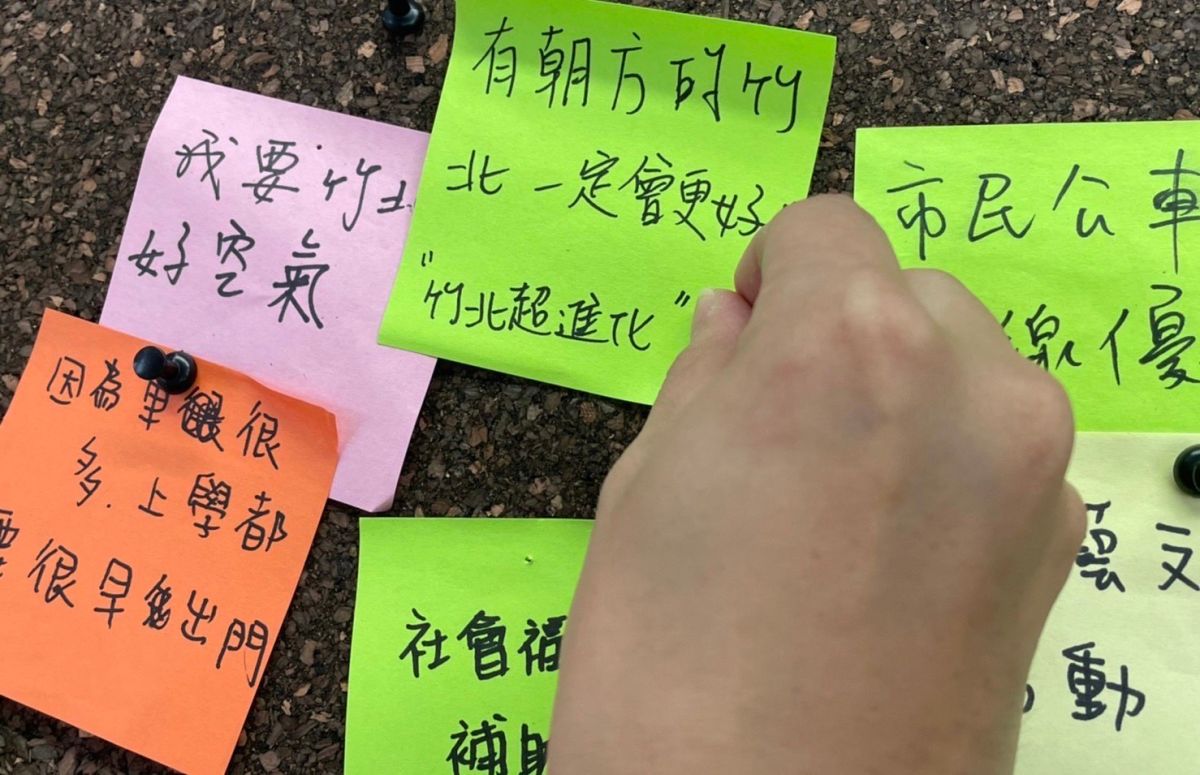 有朝方的竹
北一定會更好
"竹北超進化"
我要竹北
好空氣
市民公車
線優
因為車很
多.上學都
要很早出門
社會福
補助
藝文
動